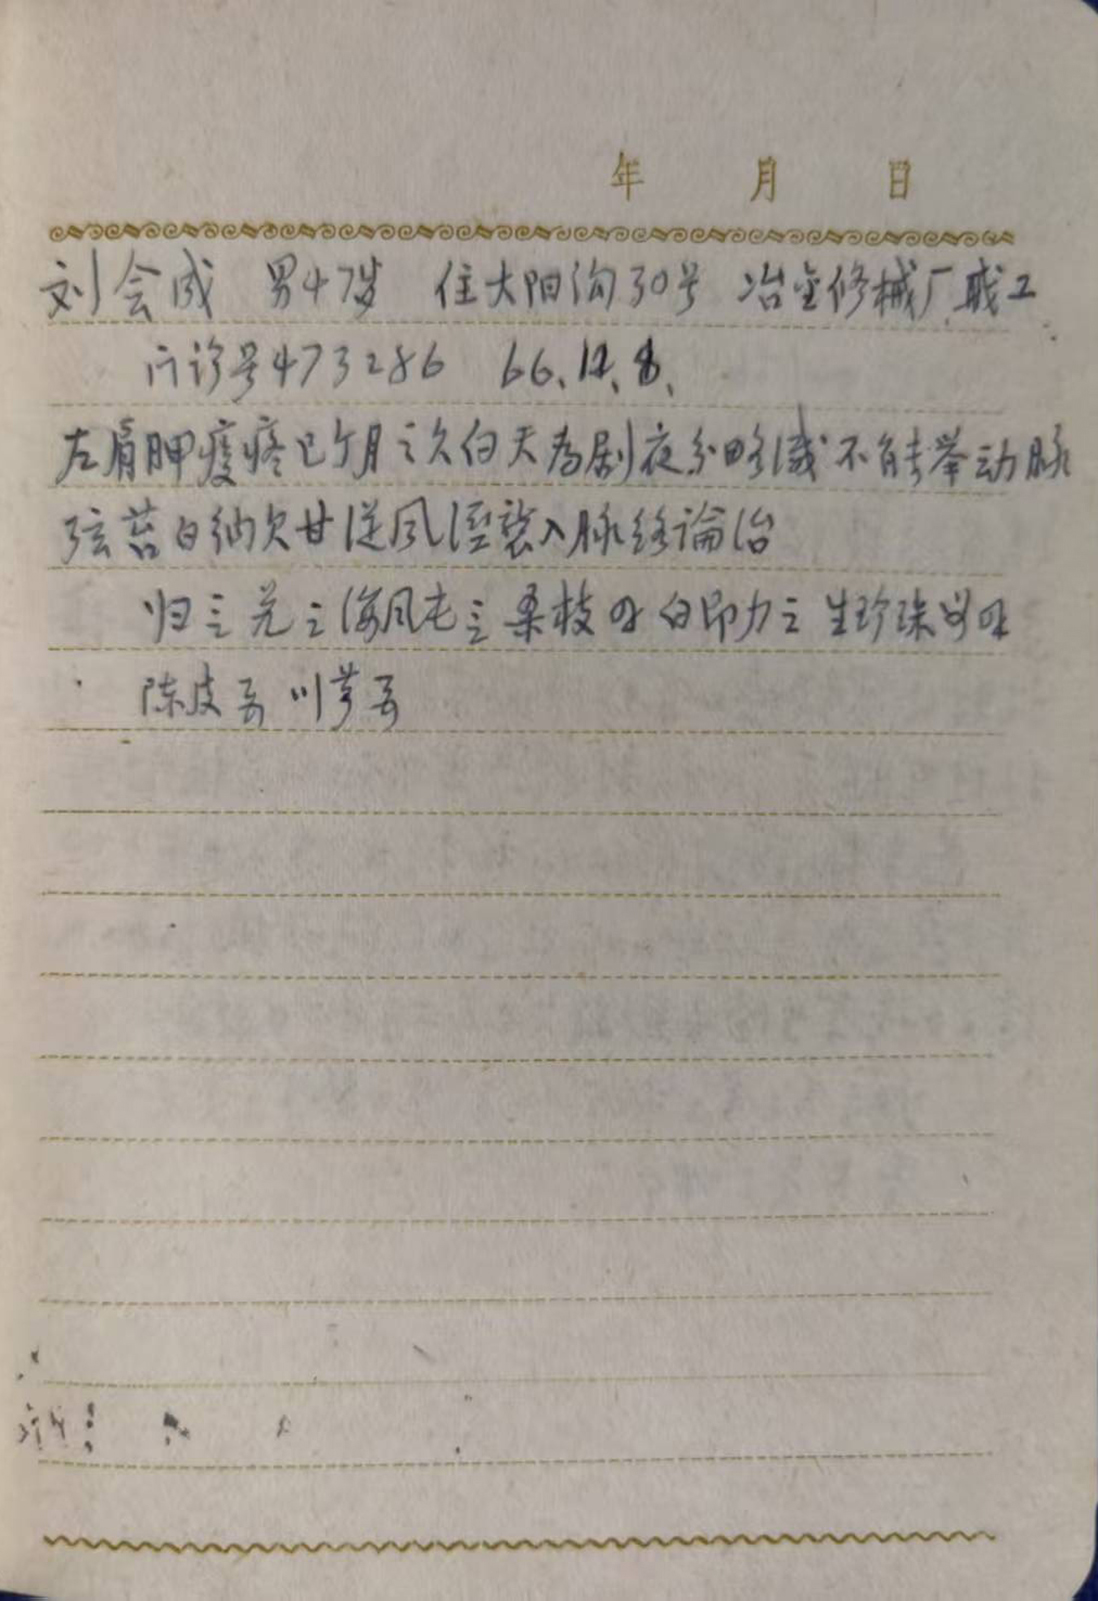 年 月 日
刘会成 男47岁 住大阳沟30号 冶金修械厂职工
门诊号473286 66、12、8、
左肩胛痠疼已个月之久白天为剧夜分略减不能举动脉
弦苔白纳欠甘従风湿袭入脉络論治
归三 羌二 海风屯三 桑枝 白 力三 生珍珠母
陈皮 川芎